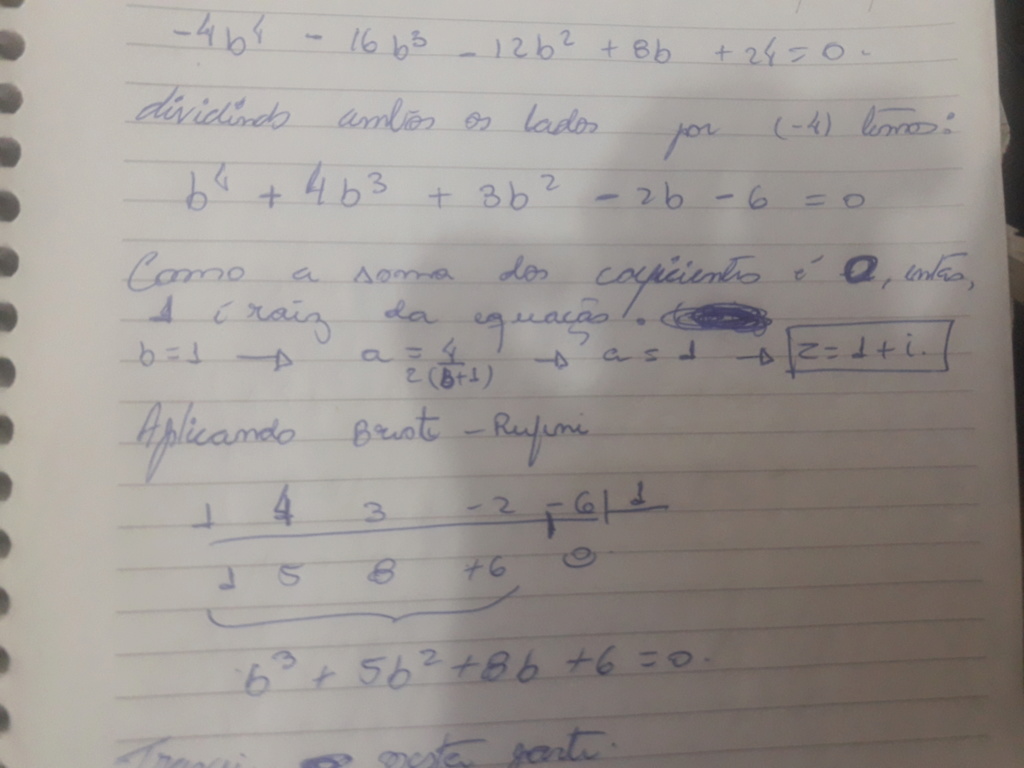 -4b⁴ - 16b³ - 12b² + 8b + 24 = 0.
dividindo ambos os lados por (-4) temos:
b⁴ + 4b³ + 3b² - 2b - 6 = 0
Como a soma dos coeficientes é 0, então,
1 é raiz da equação.
b = 1 → a = 4/2(b+1) → a = 1 → z = 1 + i.
Aplicando Briot-Rufini
1 4 3 -2 -6 | 1
1 5 8 +6 0
b³ + 5b² + 8b + 6 = 0.
nesta parte.